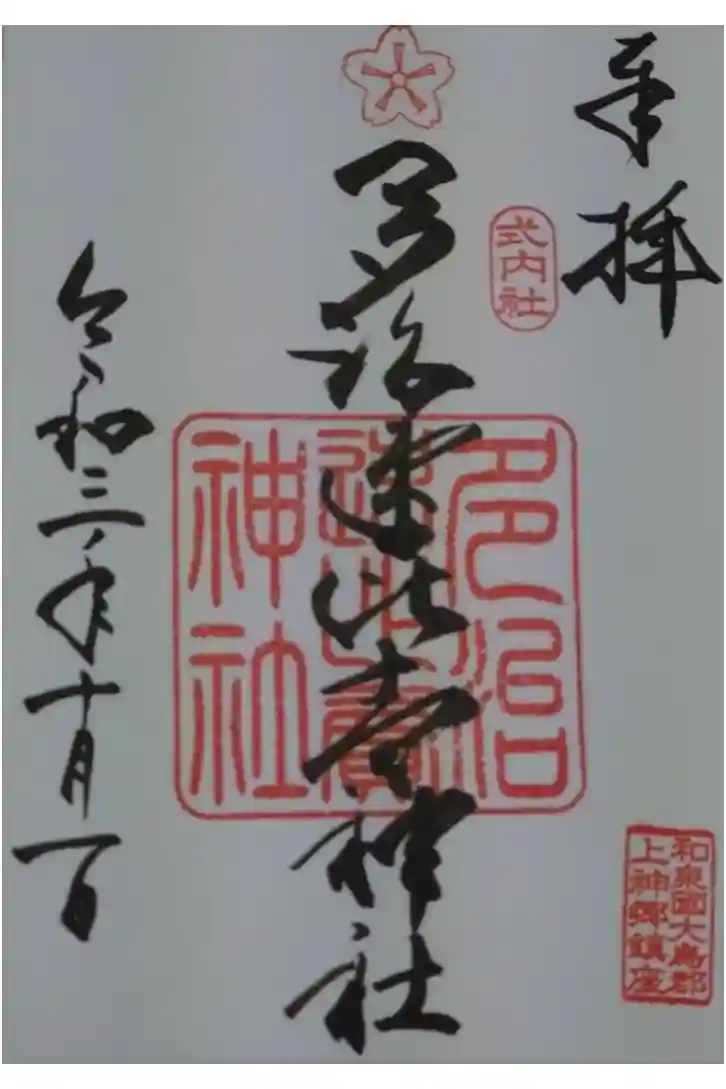 奉拝
式内社
多治速比売神社
多治
速比賣
神社
令和三年十月一日
和泉國大鳥郡
上神郷鎮座